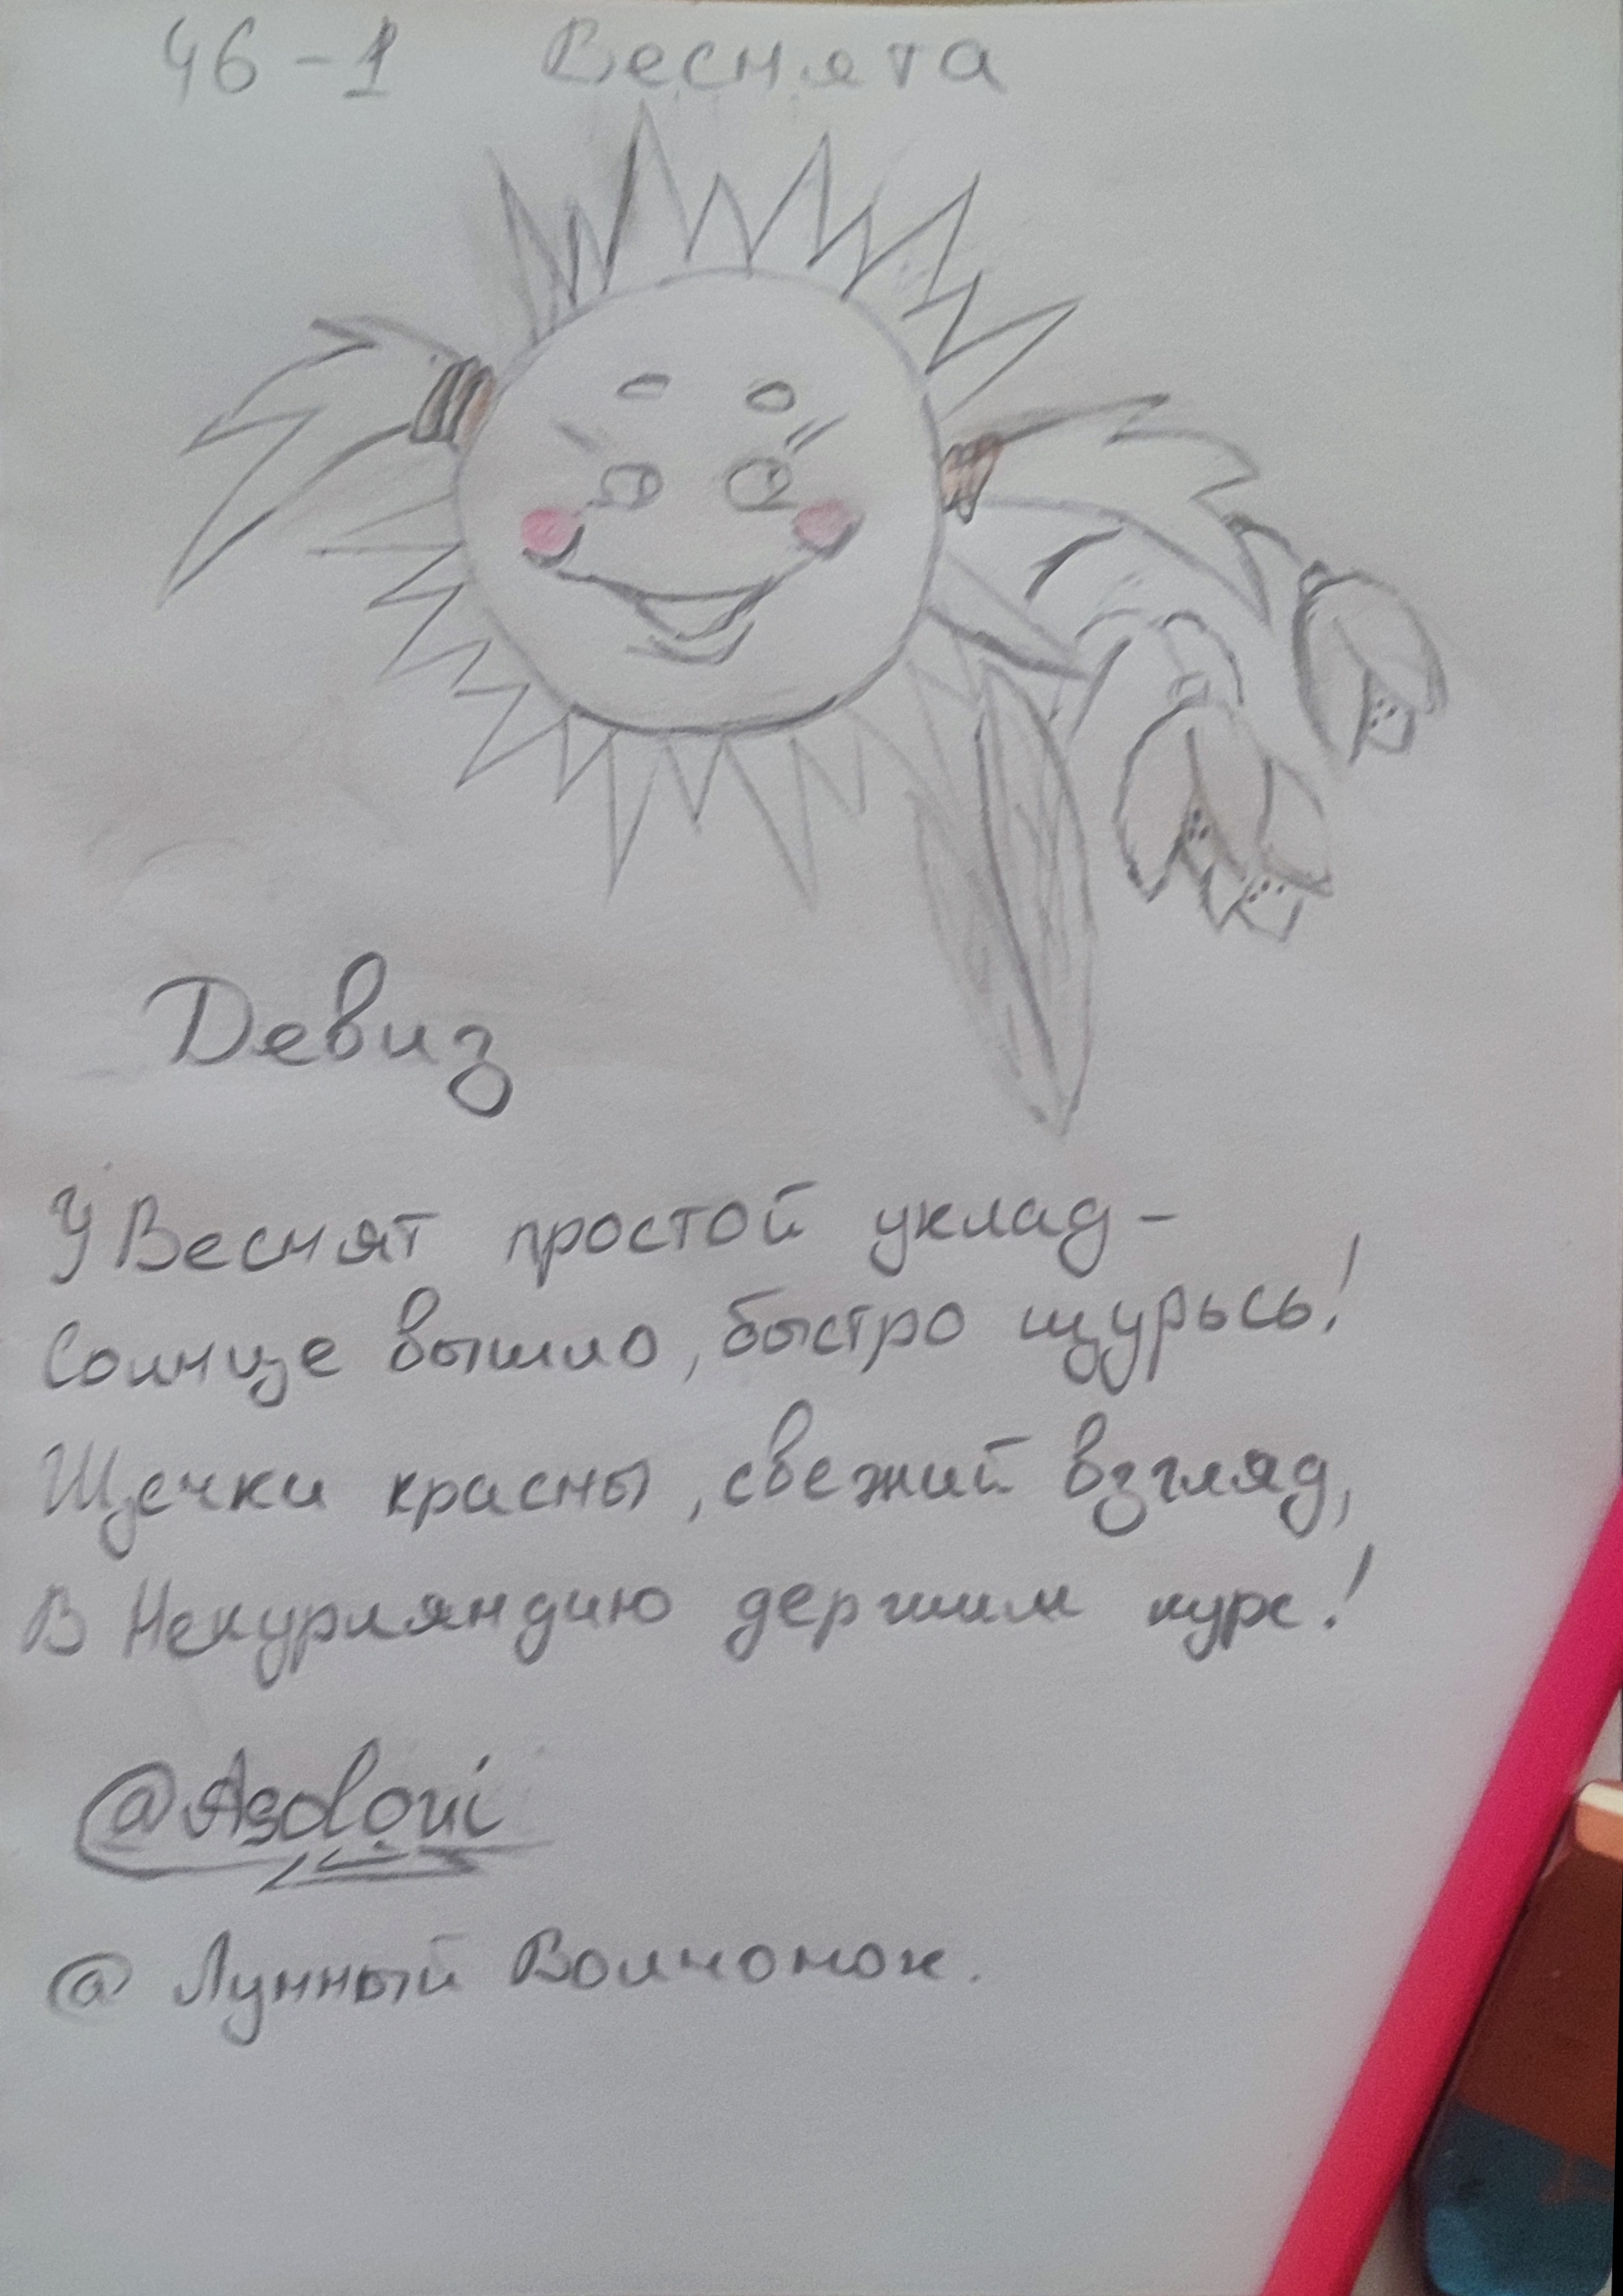 46-1 Веснята
Девиз
У Веснят простой уклад -
Солнце вышло, быстро щурьсь!
Щечки красны, свежий взгляд,
В Некурляндию держим курс!
@Asoloni
@ Лунный Волчонок.